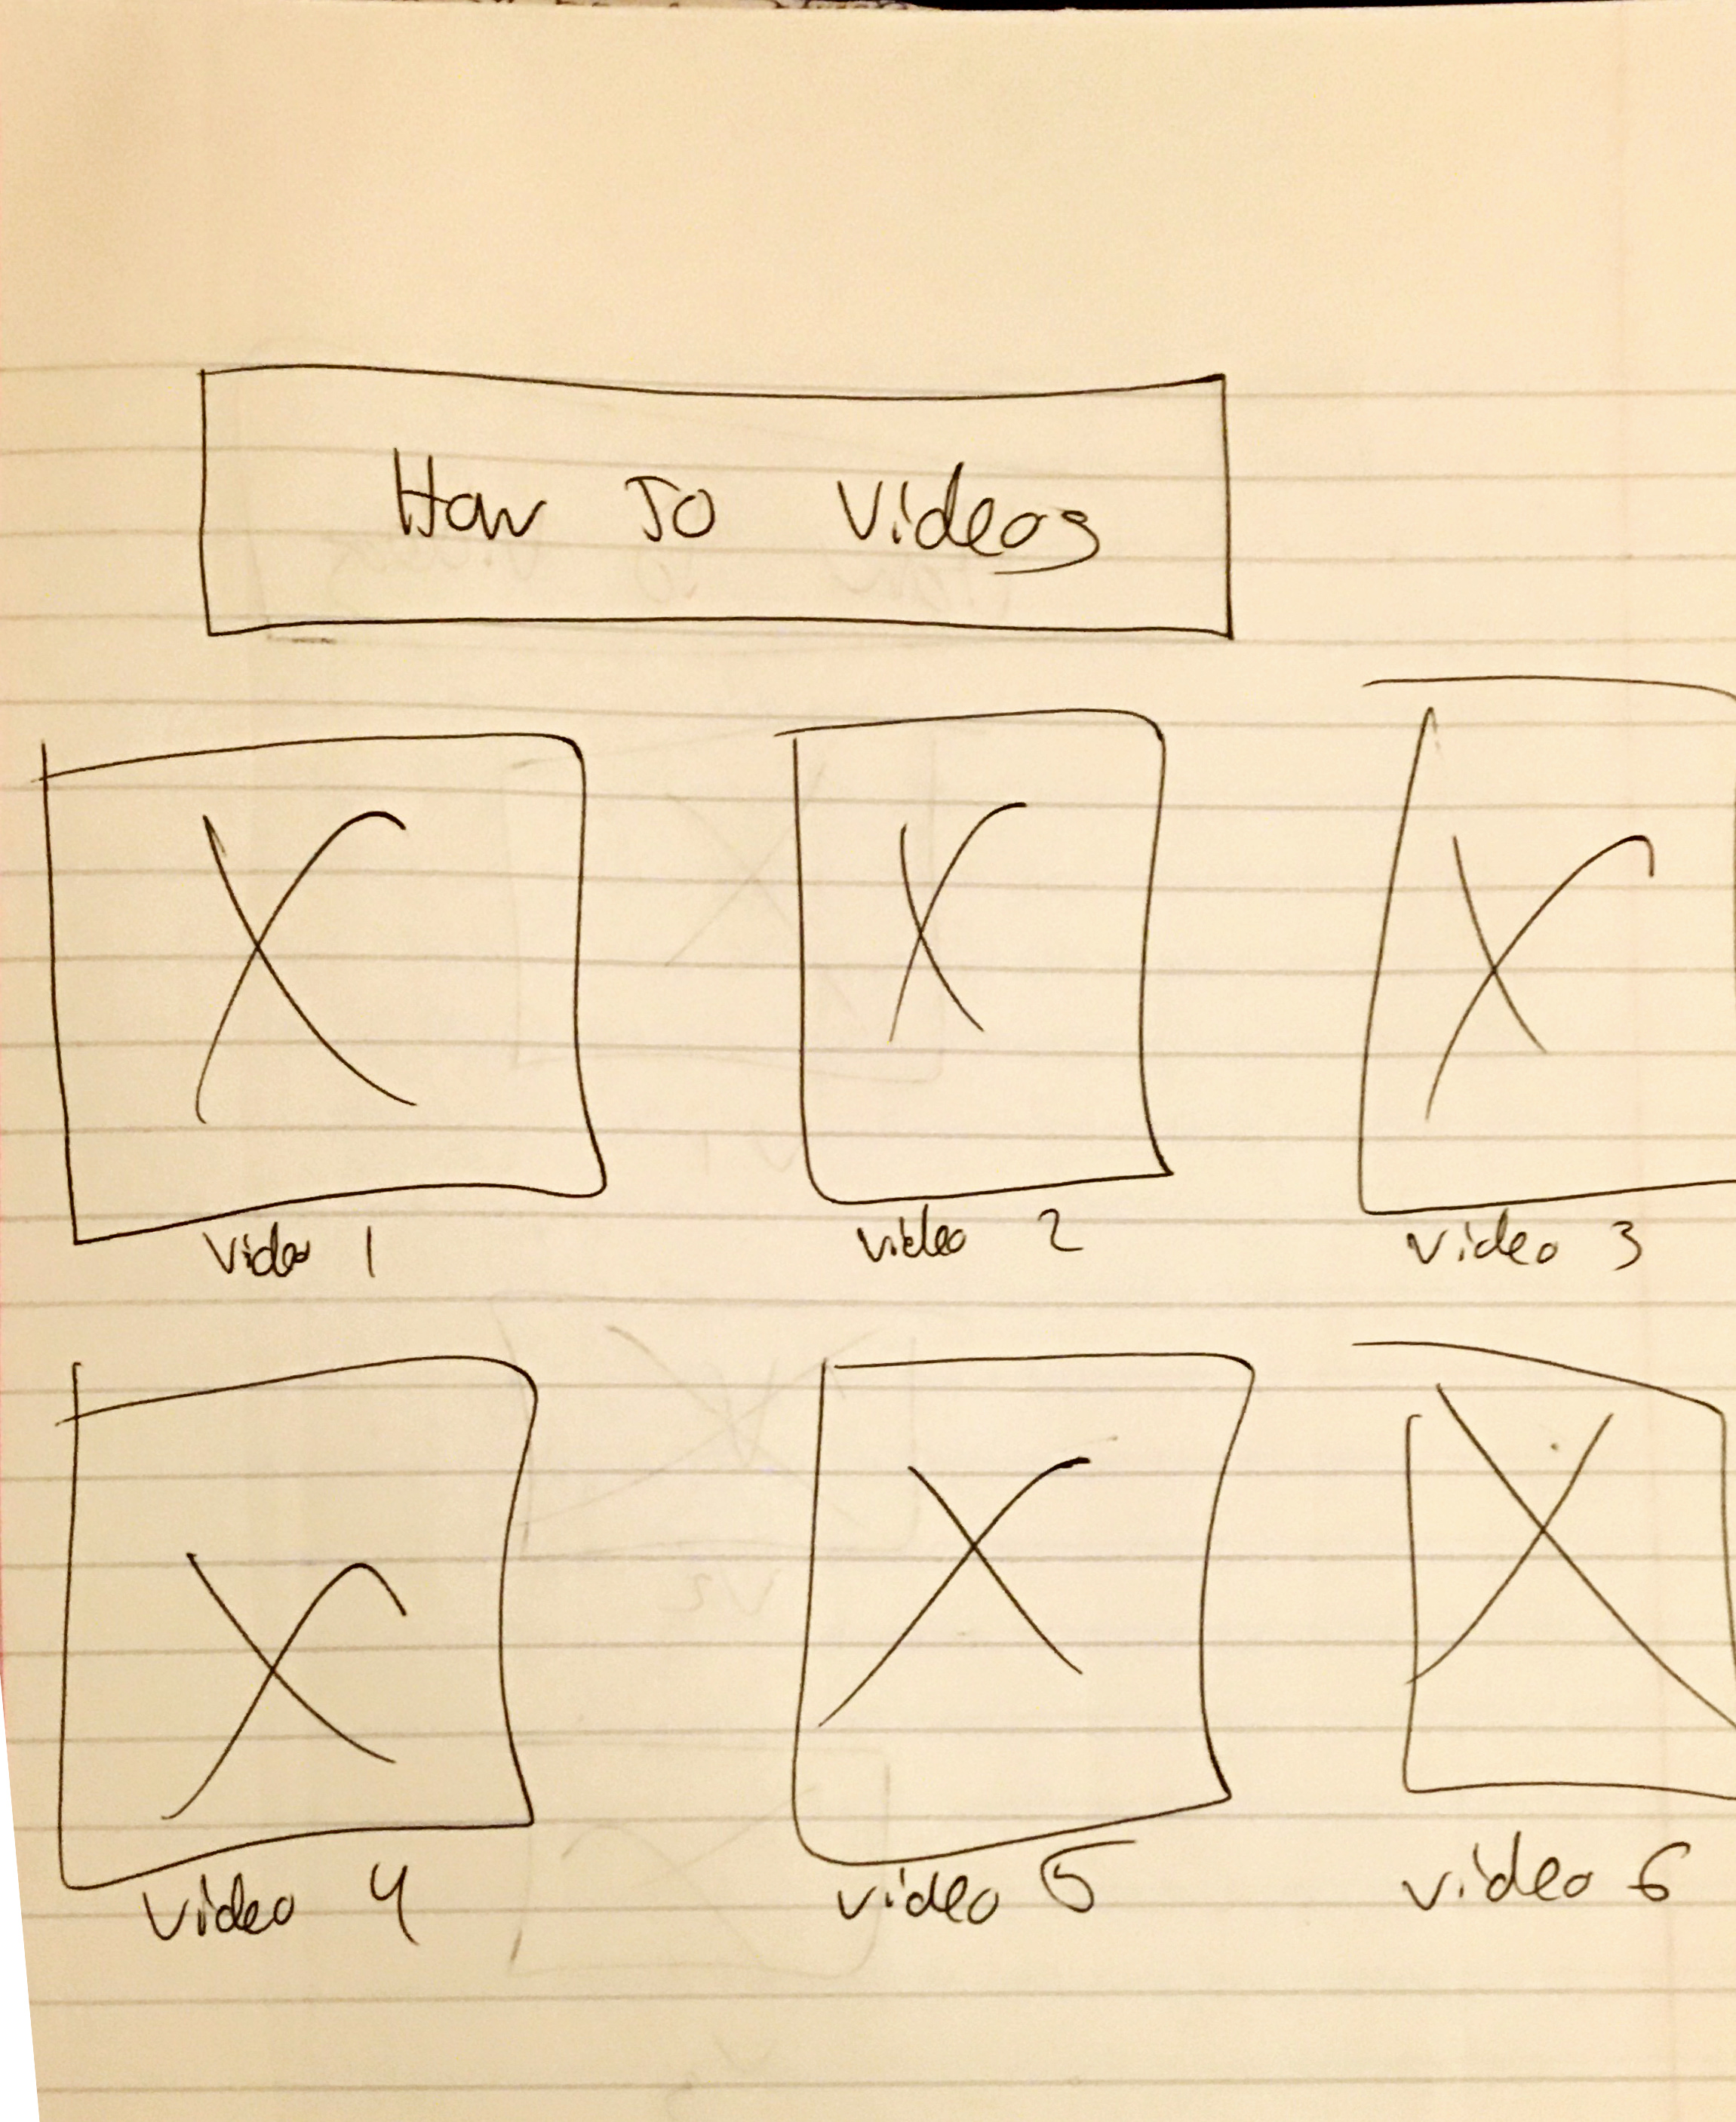 How To Videos
Video 1
video 2
video 3
video 4
video 5
video 6